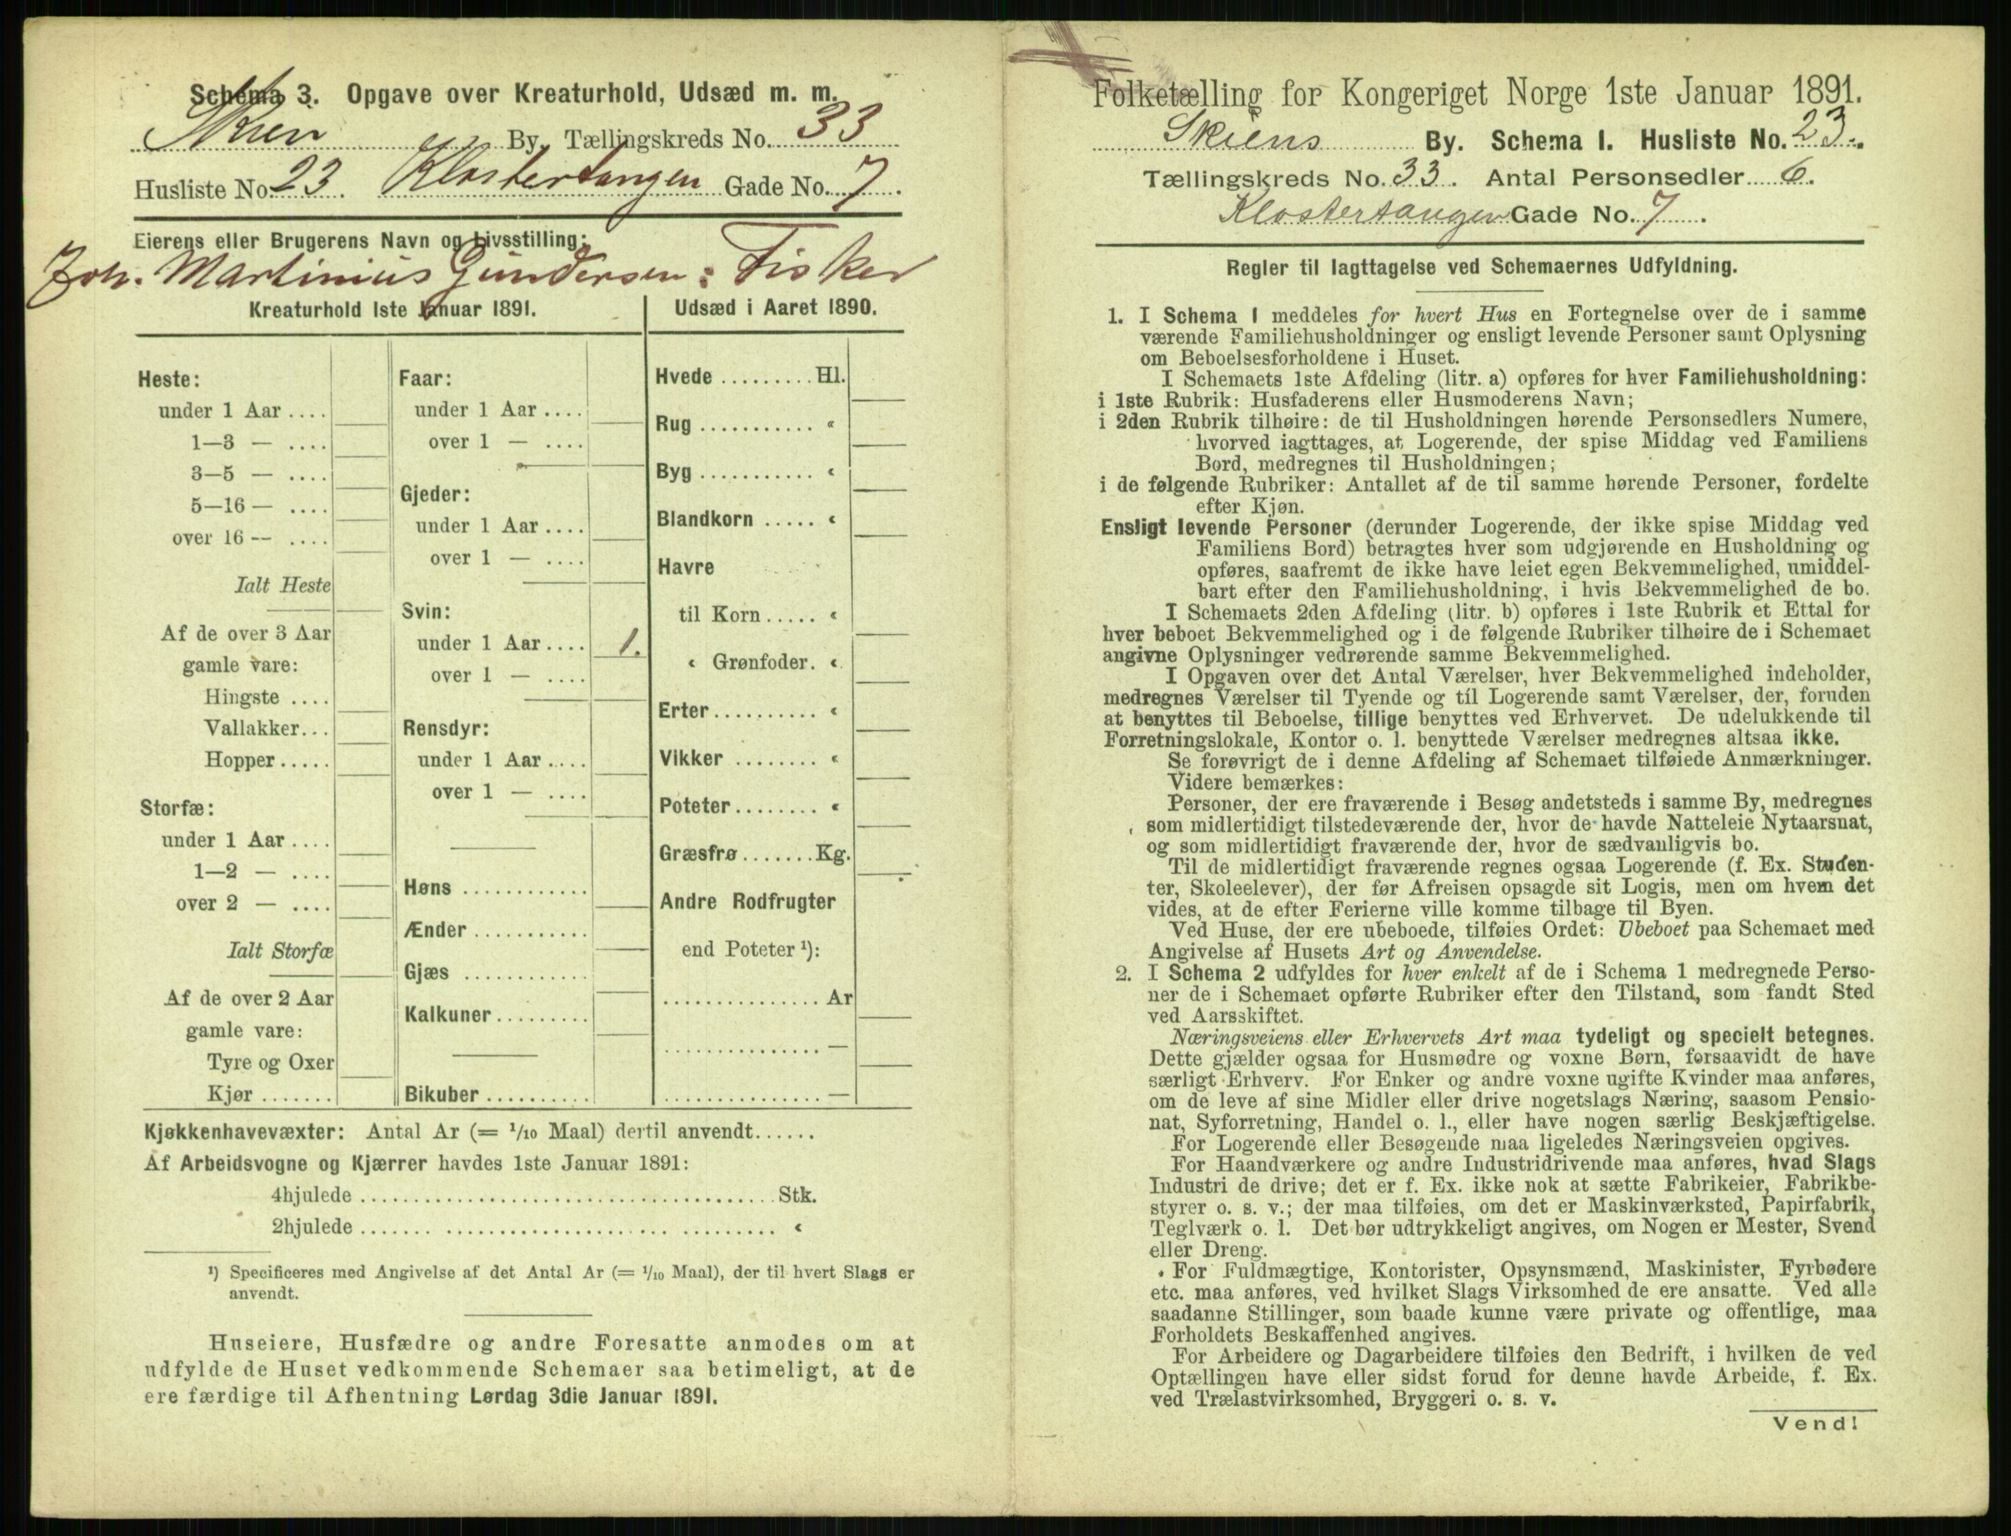 Schema 3. Opgave over Kreaturhold, Udsæd m. m.
Skien By. Tællingskreds No. 33
Husliste No. 23 Klostertangen Gade No. 7.
Eierens eller Brugerens Navn og Livsstilling:
Joh. Martinius Gundersen: Fisker
Kreaturhold 1ste Januar 1891.
Heste:
under 1 Aar ....
1—3 — ....
3—5 — ....
5—16 — ....
over 16 — ....
Ialt Heste
Af de over 3 Aar
gamle vare:
Hingste ....
Vallakker...
Hopper.....
Storfæ:
under 1 Aar ....
1—2 — ....
over 2 — ....
Ialt Storfæ
Af de over 2 Aar
gamle vare:
Tyre og Oxer
Kjør .......
Faar:
under 1 Aar ....
over 1 — ....
Gjeder:
under 1 Aar ....
over 1 — ....
Svin:
under 1 Aar .... 1.
over 1 — ....
Rensdyr:
under 1 Aar ....
over 1 — ....
Høns ...........
Ænder ...........
Gjæs ...........
Kalkuner.........
Bikuber ..........
Udsæd i Aaret 1890.
Hvede .........Hl.
Rug ........... «
Byg ........... «
Blandkorn ..... «
Havre
til Korn..... «
« Grønfoder. «
Erter.......... «
Vikker ........ «
Poteter........ «
Græsfrø .......Kg.
Andre Rodfrugter
end Poteter ¹):
............... Ar
............... —
............... —
Kjøkkenhavevæxter: Antal Ar (= 1/10 Maal) dertil anvendt......
Af Arbeidsvogne og Kjærrer havdes 1ste Januar 1891:
4hjulede ..................................... Stk.
2hjulede ..................................... «
¹) Specificeres med Angivelse af det Antal Ar (= 1/10 Maal), der til hvert Slags er
anvendt.
Huseiere, Husfædre og andre Foresatte anmodes om at
udfylde de Huset vedkommende Schemaer saa betimeligt, at de
ere færdige til Afhentning Lørdag 3die Januar 1891.
Folketælling for Kongeriget Norge 1ste Januar 1891.
Skiens By. Schema I. Husliste No. 23.
Tællingskreds No. 33. Antal Personsedler 6.
Klostertangen Gade No. 7.
Regler til Iagttagelse ved Schemaernes Udfyldning.
1. I Schema 1 meddeles for hvert Hus en Fortegnelse over de i samme
værende Familiehusholdninger og ensligt levende Personer samt Oplysning
om Beboelsesforholdene i Huset.
I Schemaets 1ste Afdeling (litr. a) opføres for hver Familiehusholdning:
i 1ste Rubrik: Husfaderens eller Husmoderens Navn;
i 2den Rubrik tilhøire: de til Husholdningen hørende Personsedlers Numere,
hvorved iagttages, at Logerende, der spise Middag ved Familiens
Bord, medregnes til Husholdningen;
i de følgende Rubriker: Antallet af de til samme hørende Personer, fordelte
efter Kjøn.
Ensligt levende Personer (derunder Logerende, der ikke spise Middag ved
Familiens Bord) betragtes hver som udgjørende en Husholdning og
opføres, saafremt de ikke have leiet egen Bekvemmelighed, umiddel-
bart efter den Familiehusholdning, i hvis Bekvemmelighed de bo.
I Schemaets 2den Afdeling (litr. b) opføres i 1ste Rubrik et Ettal for
hver beboet Bekvemmelighed og i de følgende Rubriker tilhøire de i Schemaet
angivne Oplysninger vedrørende samme Bekvemmelighed.
I Opgaven over det Antal Værelser, hver Bekvemmelighed indeholder,
medregnes Værelser til Tyende og til Logerende samt Værelser, der, foruden
at benyttes til Beboelse, tillige benyttes ved Erhvervet. De udelukkende til
Forretningslokale, Kontor o. l. benyttede Værelser medregnes altsaa ikke.
Se forøvrigt de i denne Afdeling af Schemaet tilføiede Anmærkninger.
Videre bemærkes:
Personer, der ere fraværende i Besøg andetsteds i samme By, medregnes
som midlertidigt tilstedeværende der, hvor de havde Natteleie Nytaarsnat,
og som midlertidigt fraværende der, hvor de sædvanligvis bo.
Til de midlertidigt fraværende regnes ogsaa Logerende (f. Ex. Studen-
ter, Skoleelever), der før Afreisen opsagde sit Logis, men om hvem det
vides, at de efter Ferierne ville komme tilbage til Byen.
Ved Huse, der ere ubeboede, tilføies Ordet: Ubeboet paa Schemaet med
Angivelse af Husets Art og Anvendelse.
2. I Schema 2 udfyldes for hver enkelt af de i Schema 1 medregnede Perso-
ner de i Schemaet opførte Rubriker efter den Tilstand, som fandt Sted
ved Aarsskiftet.
Næringsveiens eller Erhvervets Art maa tydeligt og specielt betegnes.
Dette gjælder ogsaa for Husmødre og voxne Børn, forsaavidt de have
særligt Erhverv. For Enker og andre voxne ugifte Kvinder maa anføres,
om de leve af sine Midler eller drive nogetslags Næring, saasom Pensio-
nat, Syforretning, Handel o. l., eller have nogen særlig Beskjæftigelse.
For Logerende eller Besøgende maa ligeledes Næringsveien opgives.
For Haandværkere og andre Industridrivende maa anføres, hvad Slags
Industri de drive; det er f. Ex. ikke nok at sætte Fabrikeier, Fabrikbe-
styrer o. s. v.; der maa tilføies, om det er Maskinværksted, Papirfabrik,
Teglværk o. l. Det bør udtrykkeligt angives, om Nogen er Mester, Svend
eller Dreng.
For Fuldmægtige, Kontorister, Opsynsmænd, Maskinister, Fyrbødere
etc. maa anføres, ved hvilket Slags Virksomhed de ere ansatte. Ved alle
saadanne Stillinger, som baade kunne være private og offentlige, maa
Forholdets Beskaffenhed angives.
For Arbeidere og Dagarbeidere tilføies den Bedrift, i hvilken de ved
Optællingen have eller sidst forud for denne havde Arbeide, f. Ex.
ved Trælastvirksomhed, Bryggeri o. s. v.
Vend!